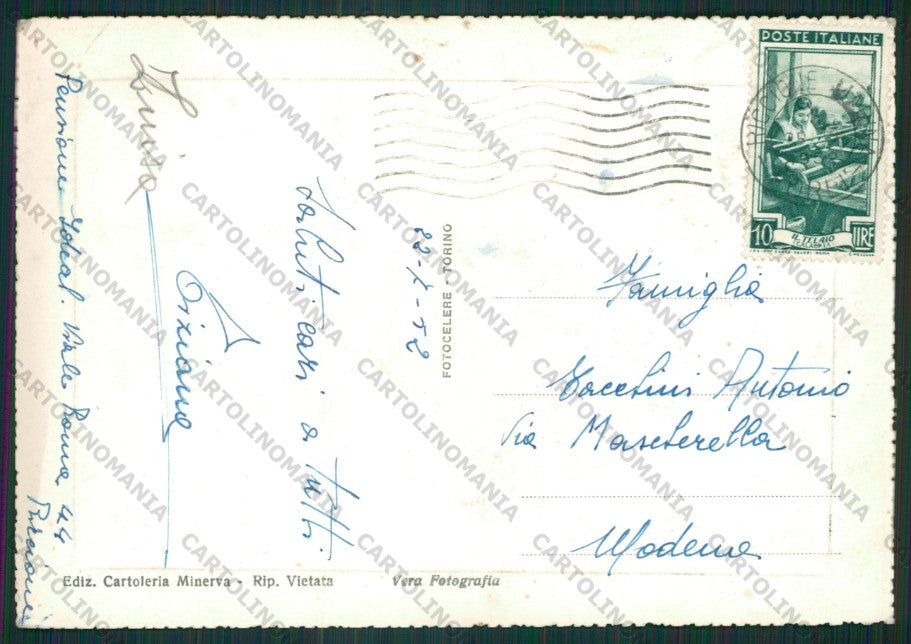 POSTE ITALIANE
10 IL TELAIO LIRE
CALABRIA
RICCIONE MARINA
22-7-52
Saluti cari a tutti
Tiziana
Luisa
Pensione Ideal. Viale Roma 44
Riccione
FOTOCELERE - TORINO
Famiglia
Antonio
Via
Modena
Ediz. Cartoleria Minerva - Rip. Vietata
Vera Fotografia
CARTOLINOMANIA